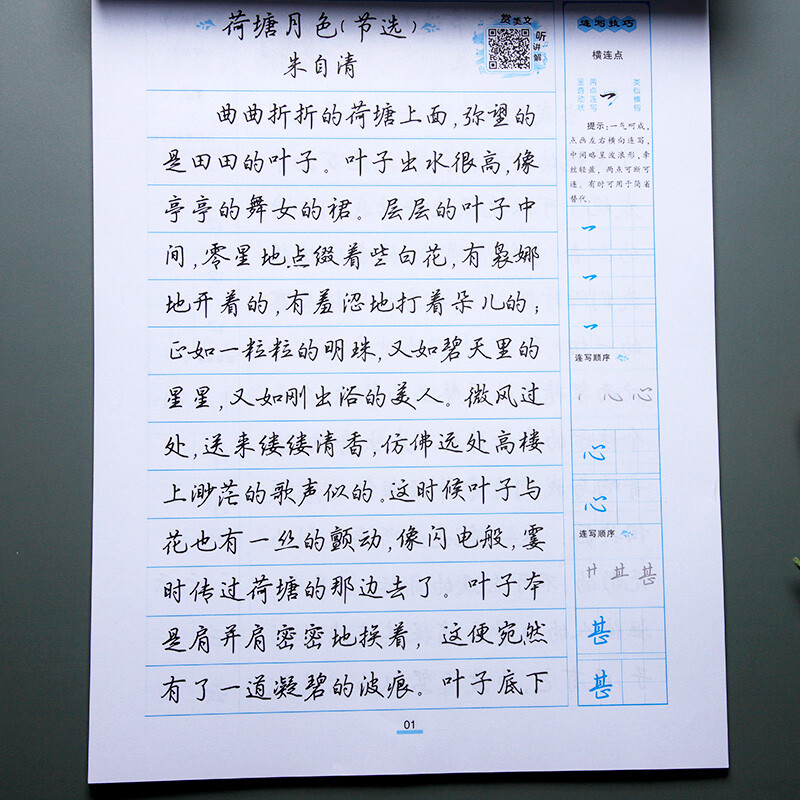 荷塘月色(节选)
朱自清
赏美文
听讲解
曲曲折折的荷塘上面,弥望的
是田田的叶子。叶子出水很高,像
亭亭的舞女的裙。层层的叶子中
间,零星地点缀着些白花,有袅娜
地开着的,有羞涩地打着朵儿的;
正如一粒粒的明珠,又如碧天里的
星星,又如刚出浴的美人。微风过
处,送来缕缕清香,仿佛远处高楼
上渺茫的歌声似的。这时候叶子与
花也有一丝的颤动,像闪电般,霎
时传过荷塘的那边去了。叶子本
是肩并肩密密地挨着,这便宛然
有了一道凝碧的波痕。叶子底下
01
连写技巧
横连点
两点连写
类似横钩
提示:一气呵成,
点画左右横向连写,
中间略呈波浪形,牵
丝轻盈,两点可断可
连。有时可用于简省
替代。
连写顺序
心
心
心
连写顺序
艹 甘 甚
甚
甚